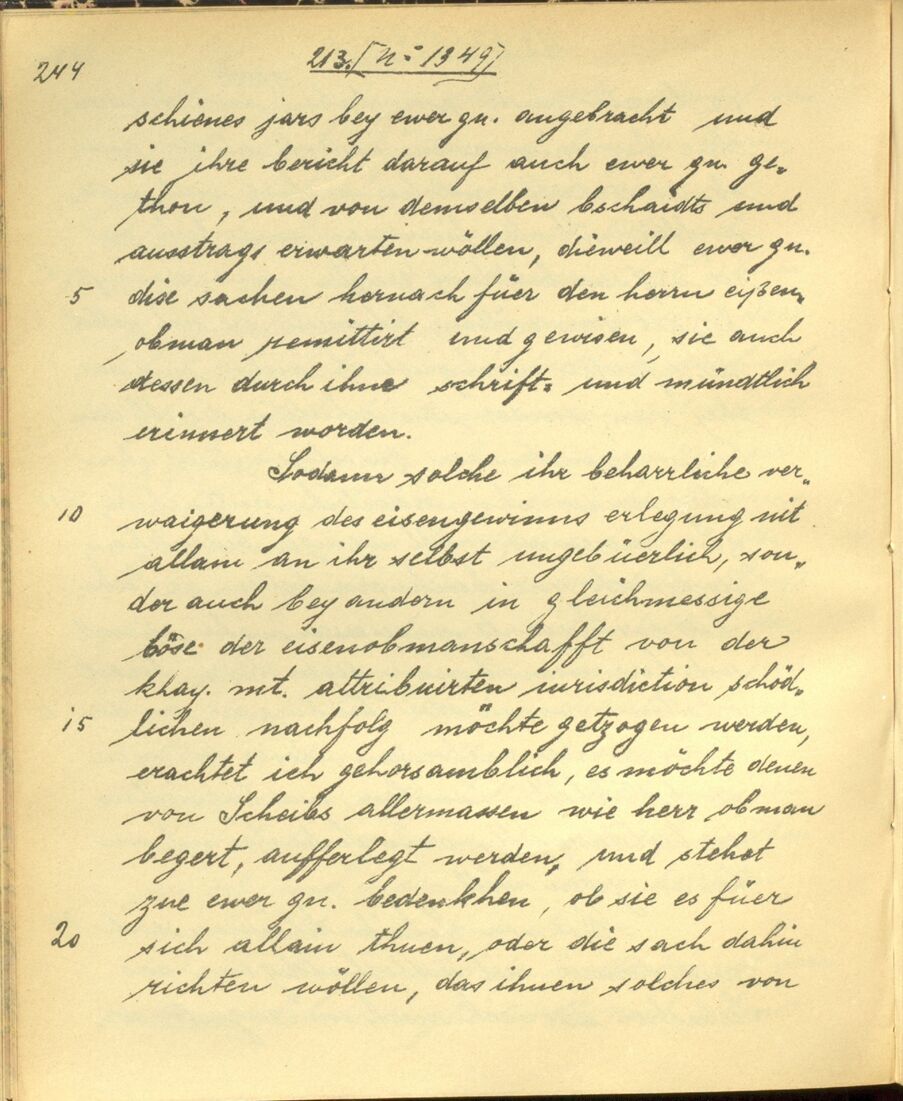 244
213. [N= 1349]
schienes jars bey ewer gn. angebracht und
sie ihre bericht darauf auch ewer gn. ge=
thon, und von demselben bschaidts und
ausstrags erwarten wöllen, dieweill ewer gn.
5 dise sachen hernach füer den herrn eißen=
obman remittirt und gewisen, sie auch
dessen durch ihne schrift= und mündtlich
erinnert worden.
Sodann solche ihr beharrliche ver=
10 waigerung des eisengewinns erlegung nit
allain an ihr selbst ungebüerlich, son=
der auch bey andern in gleichmessige
böse der eisenobmanschafft von der
khay. mt. attribuirten iurisdiction schöd=
15 lichen nachfolg möchte getzogen werden,
erachtet ich gehorsamblich, es möchte denen
von Scheibs allermassen wie herr obman
begert, aufferlegt werden, und stehet
zue ewer gn. bedenkhen, ob sie es füer
20 sich allain thuen, oder die sach dahin
richten wöllen, das ihnen solches von